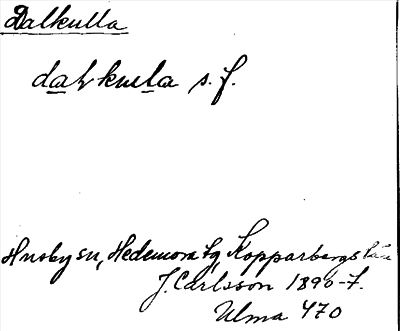 Dalkulla
dalkula s. f.
Husby sn, Hedemora tg, Kopparbergs län
J. Carlsson 1890-t.
Ulma 470